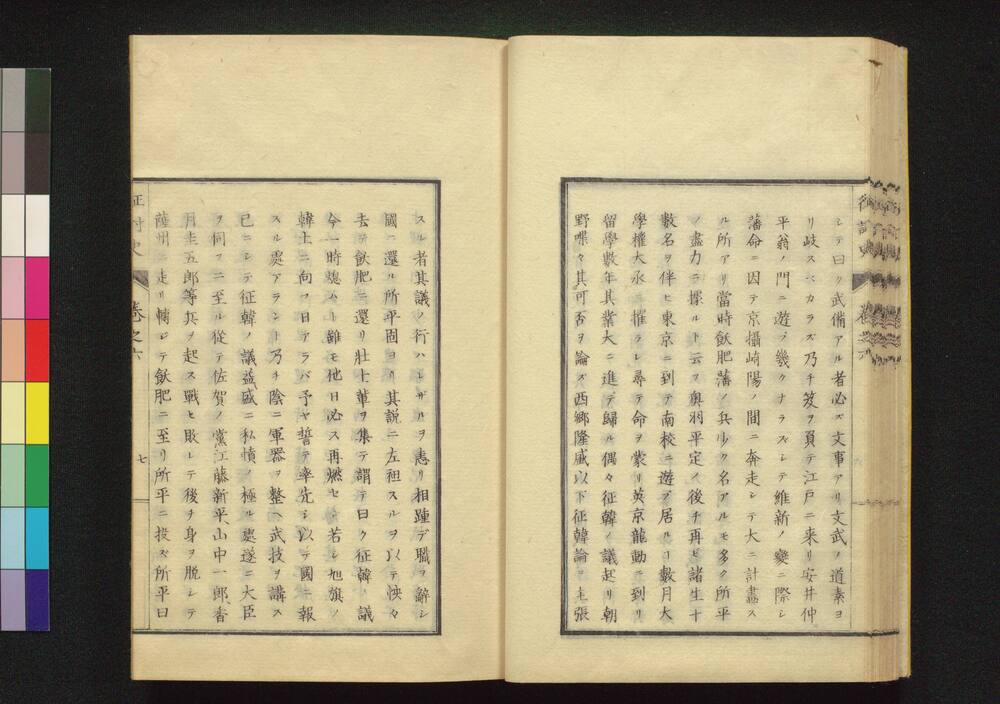 シテ曰ク武備アル者必ズ文事アリ文武ノ道素ヨ
リ岐スベカラズ乃チ笈ヲ負テ江戸ニ来リ安井仲
平翁ノ門ニ遊ブ幾クナラズシテ維新ノ變ニ際シ
藩命ニ因テ京攝崎陽ノ間ニ奔走シテ大ニ計畫ス
ル所アリ當時飫肥藩ノ兵少ク名アルモ多ク所平
ノ盡力ニ據ルト云フ奥羽平定ノ後チ再ビ諸生十
數名ヲ伴ヒ東京ニ到テ南校ニ遊ブ居ルコ數月大
學權大丞ニ擢ラレ尋テ命ヲ蒙リ英京龍動ニ到リ
留學數年其業大ニ進デ歸ル偶々征韓ノ議起リ朝
野喋々其可否ヲ論ズ西郷隆盛以下征韓論ヲ主張
スル者其議ノ行ハレザルヲ恚リ相踵デ職ヲ辭シ
國ニ還ル所平固ヨリ其説ニ左袒スルヲ以テ怏々
去テ飫肥ニ還リ壯士輩ヲ集テ謂テ曰ク征韓ノ議
今一時熄ムト雖モ他日必ス再燃セン若シ旭旗ノ
韓土ニ向フ日アラバ予ヤ誓テ率先シ以テ國ニ報
スル處アラント乃チ陰ニ軍器ヲ整ヘ武技ヲ講ス
已ニシテ征韓ノ議益盛ニ私憤ノ極ル處遂ニ大臣
ヲ伺フニ至ル從テ佐賀ノ黨江藤新平、山中一郎、香
月圭五郎等兵ヲ起ス戰ヒ敗レテ後チ身ヲ脱シテ
薩州ニ走リ轉シテ飫肥ニ至リ所平ニ投ズ所平曰
征討史
巻之六
七